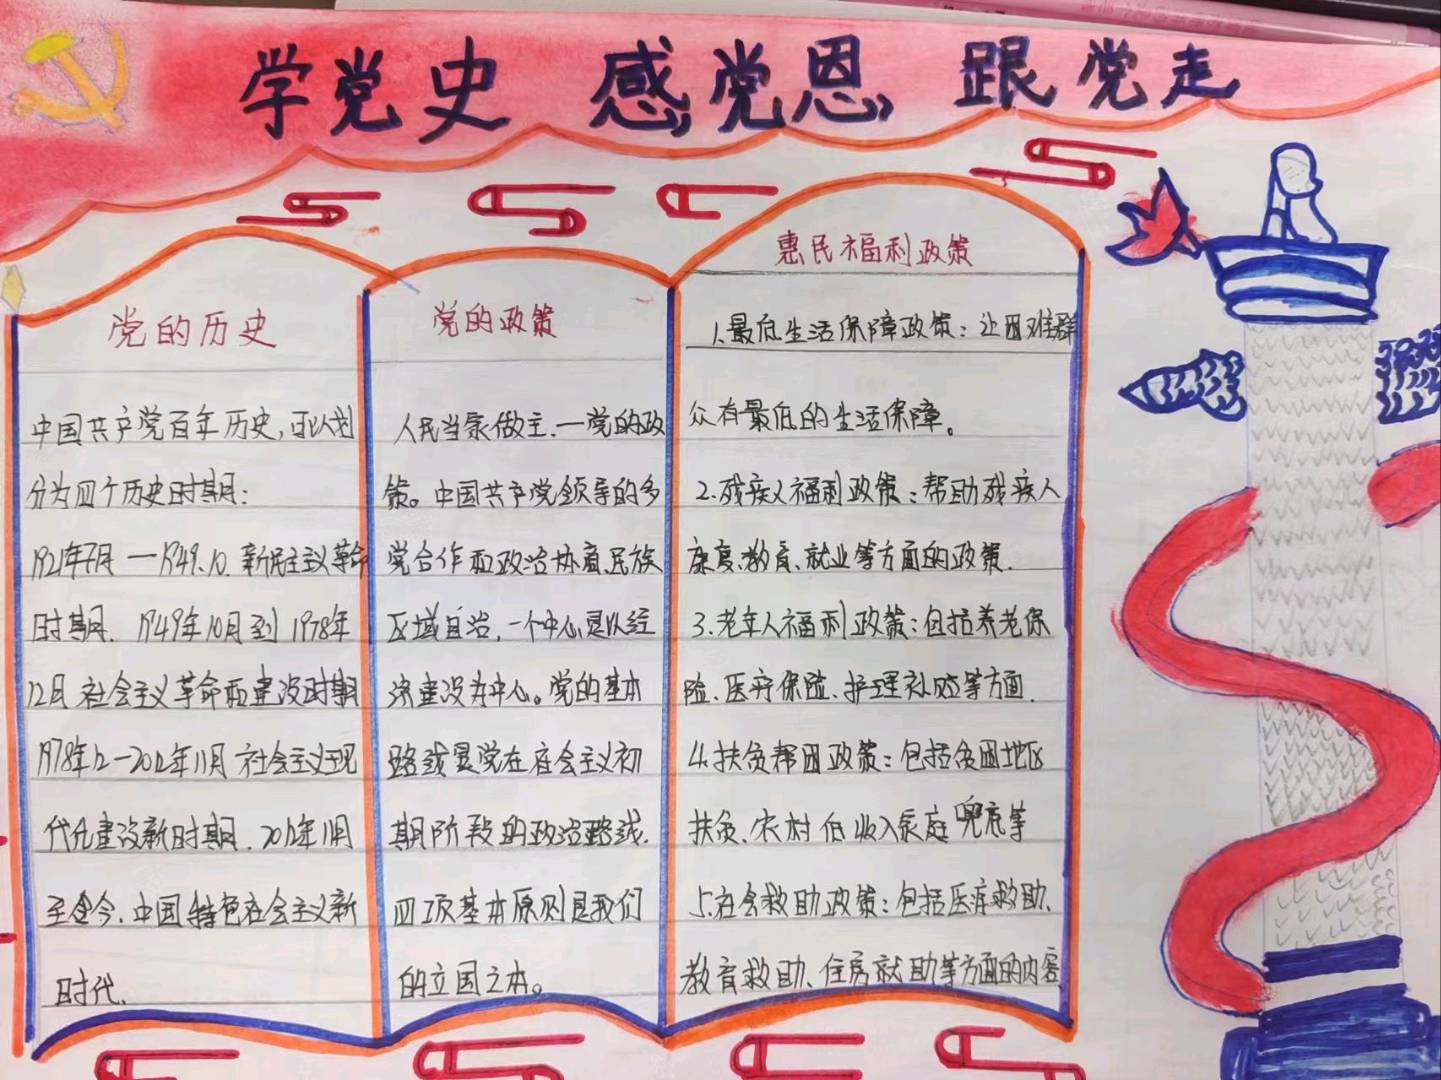 学党史 感党恩 跟党走
党的历史
中国共产党百年历史,可以划
分为四个历史时期:
1921年7月—1949.10.新民主义革命
时期. 1949年10月到1978年
12月社会主义革命和建设时期
1978年12—2012年11月社会主义现
代化建设新时期.2012年11月
至今.中国特色社会主义新
时代.
党的政策
人民当家做主.一党的政
策。中国共产党领导的多
党合作和政治协商、民族
区域自治.一个中心是以经
济建设为中心。党的基本
路线是党在社会主义初
期阶段的政治路线.
四项基本原则是我们
的立国之本。
惠民福利政策
1.最低生活保障政策:让困难群
众有最低的生活保障。
2.残疾人福利政策:帮助残疾人
康复、教育、就业等方面的政策.
3.老年人福利政策:包括养老保
险、医疗保险、护理补贴等方面.
4.扶贫帮困政策:包括贫困地区
扶贫、农村低收入家庭兜底等
5.社会救助政策:包括医疗救助、
教育救助、住房就助等方面的内容